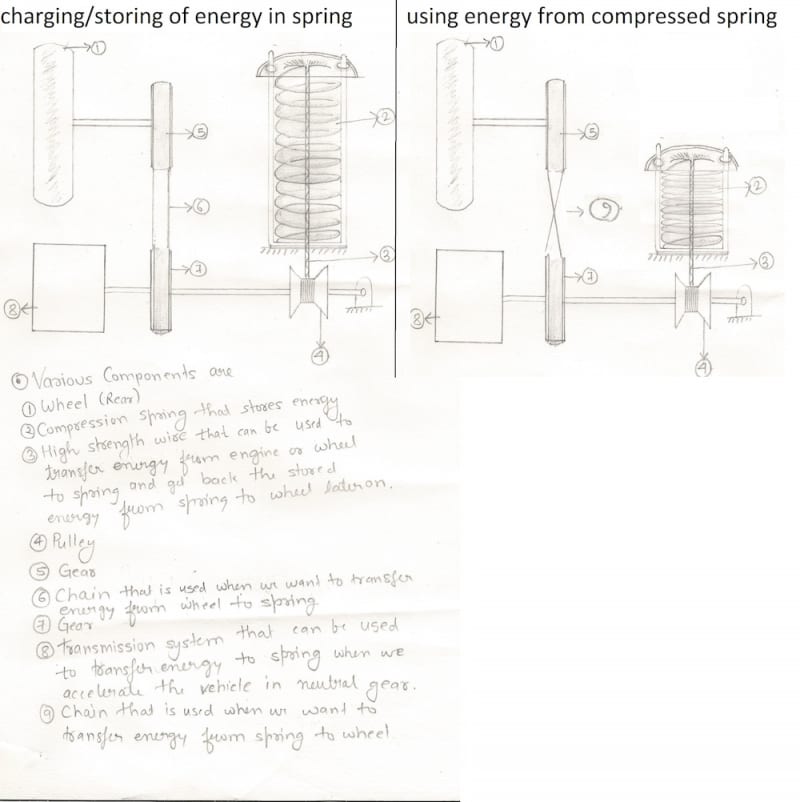 charging/storing of energy in spring
using energy from compressed spring
1
5
2
6
3
7
8
4
1
5
2
9
3
7
8
4
Various Components are
① Wheel (Rear)
② Compression spring that stores energy
③ High strength wire that can be used to
transfer energy from engine or wheel
to spring and get back the stored
energy from spring to wheel lateron.
④ Pulley
⑤ Gear
⑥ Chain that is used when we want to transfer
energy from wheel to spring
⑦ Gear
⑧ Transmission system that can be used
to transfer energy to spring when we
accelerate the vehicle in neutral gear.
⑨ Chain that is used when we want to
transfer energy from spring to wheel.